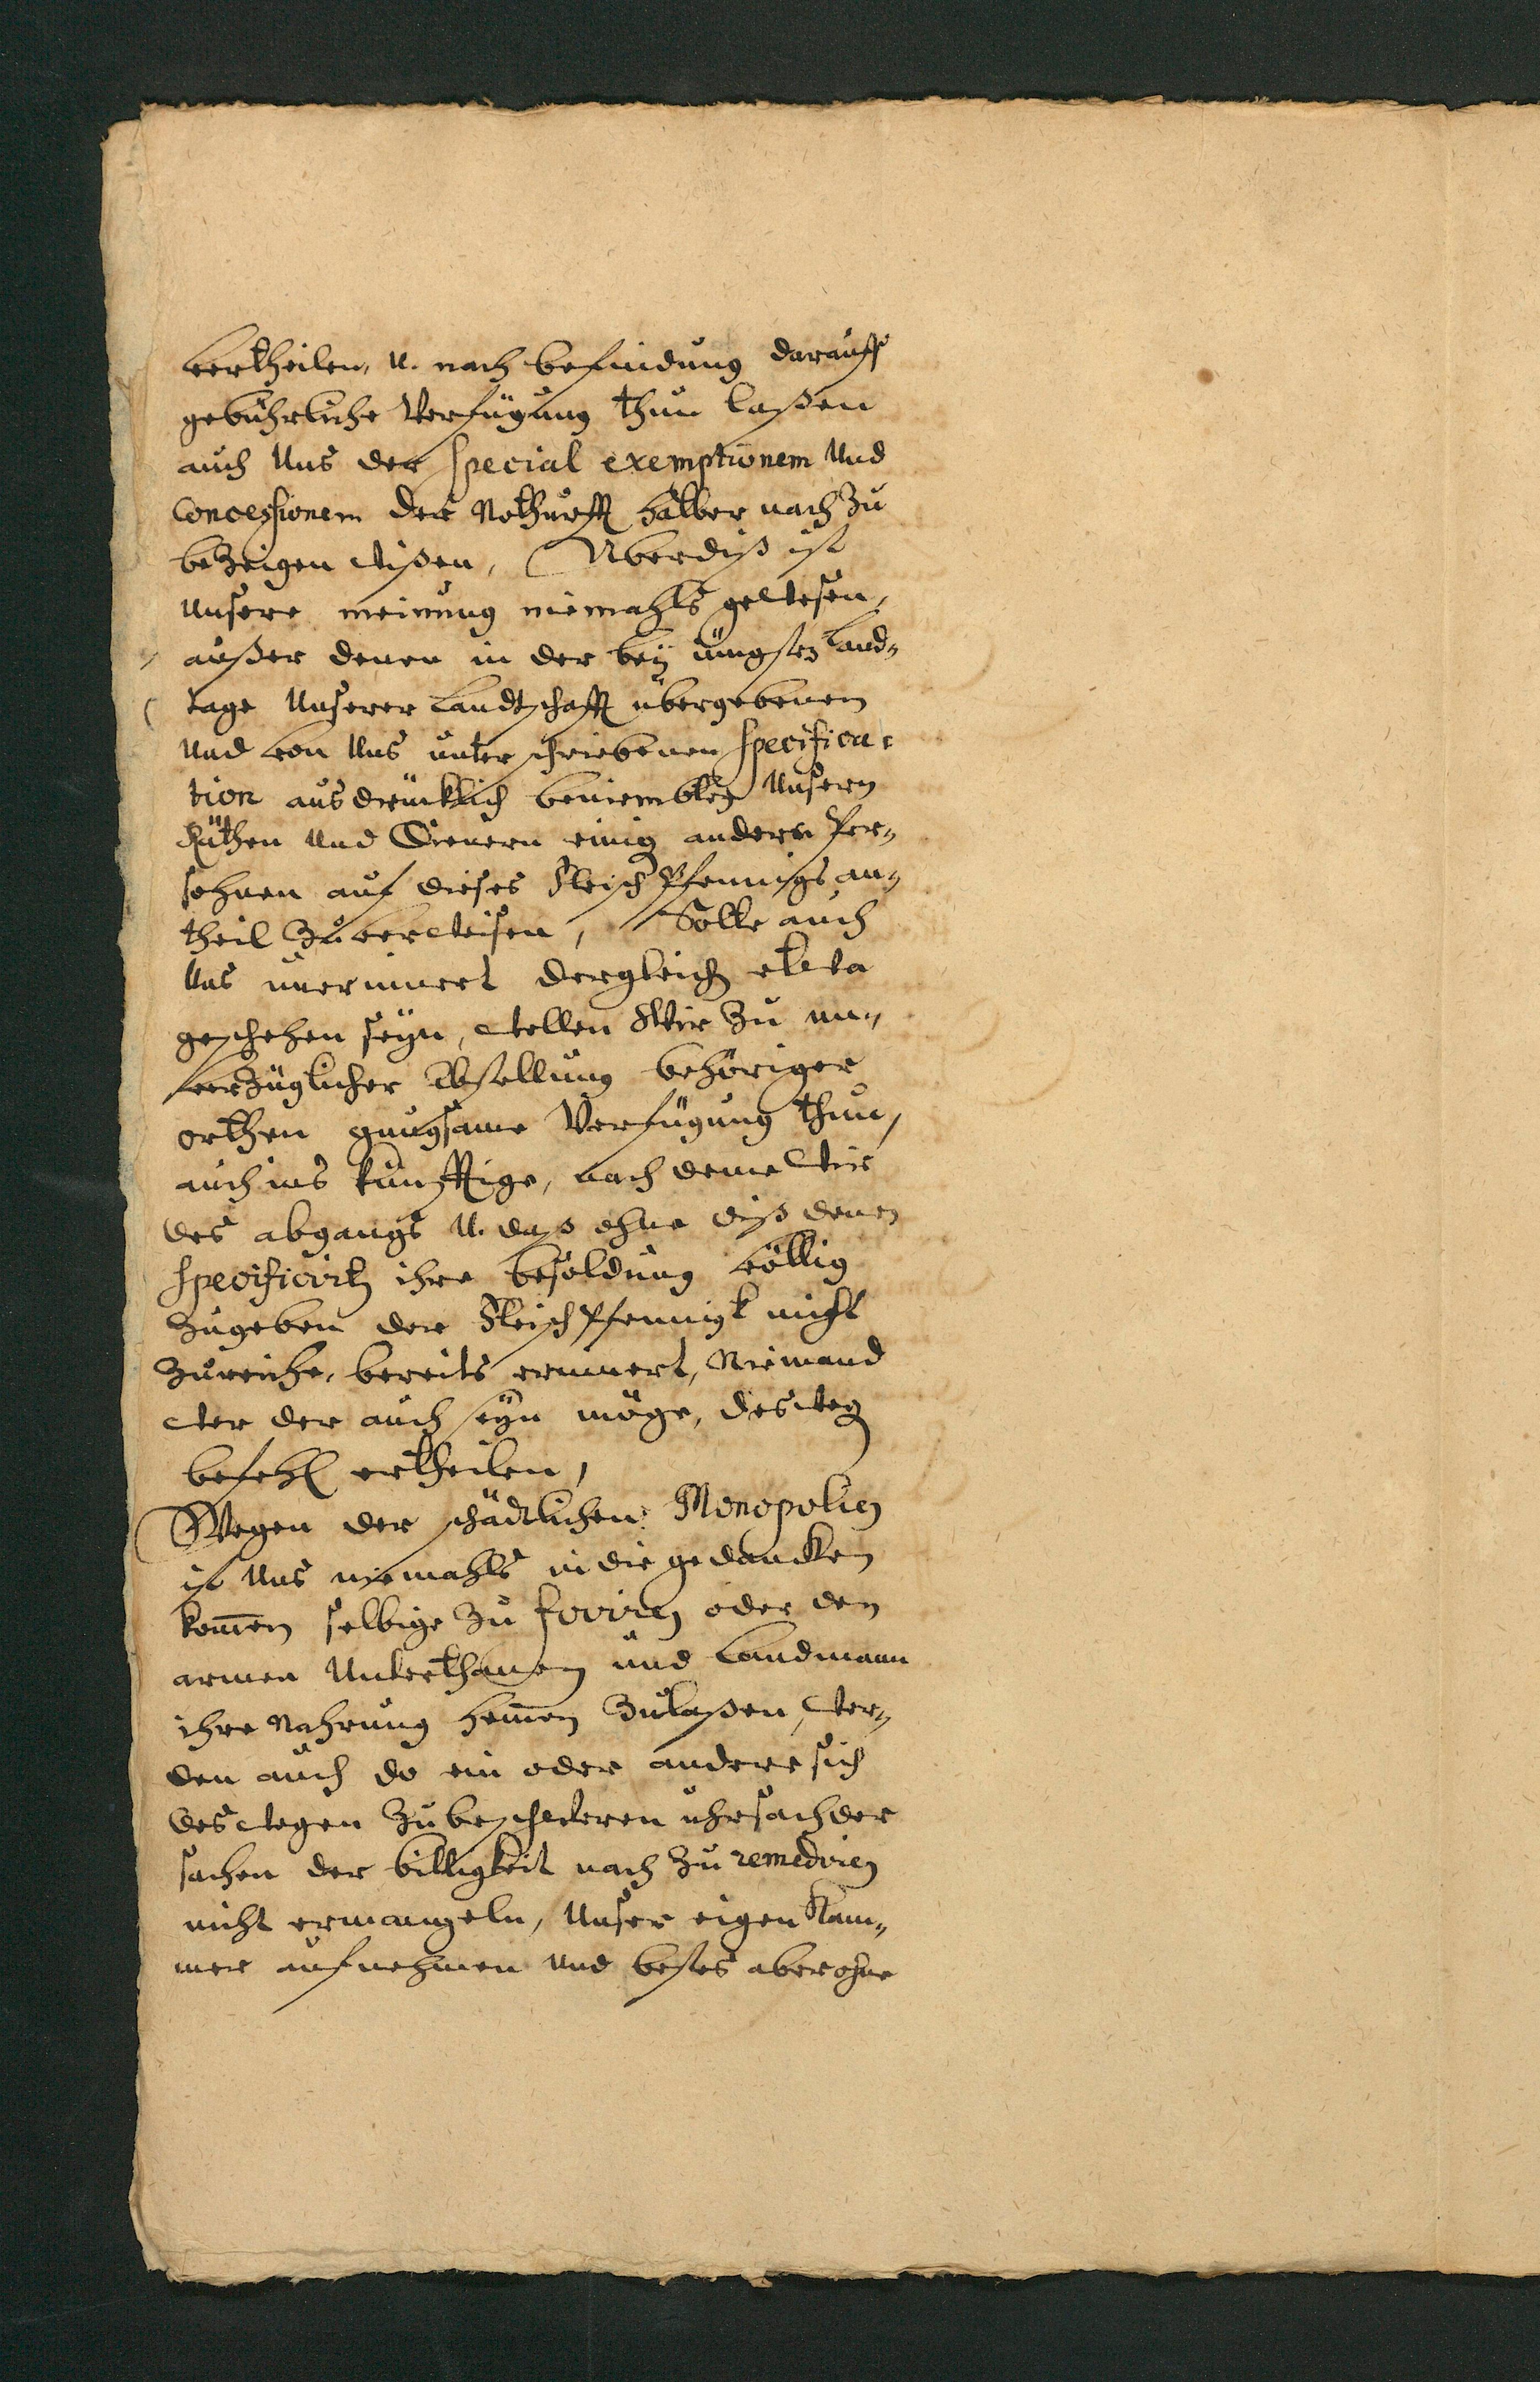 vertheilen, u. nach befindung darauff
gebührliche Verfügung thun laßen
auch Uns der special exemptionem Und
Concessionem der Nothurfft halber nach Zu
beZeigen wißen, Uberdiß ist
Unsere meinung niemahls gewesen,
außer denen in der beÿ iüngsten Land-
tage Unserer Landtschafft übergebenen
Und von Uns unterschriebenen specifica-
tion ausdrücklich beniembten Unsern
Räthen Und Dienern einig andere Per-
sohnen auf dieses Fleisch Pfennigs an-
theil Zu verweisen, Solte auch
Uns unerinnert dergleichen etwa
geschehen seÿn, wollen Wir Zu un-
verZüglicher Abstellung behöriger
orthen gnugsame Verfügung thun,
auch ins künfftige, nach deme Wir
des abgangs u. daß ohne diß denen
specificirten ihre besoldung völlig
Zugeben der Fleisch Pfennigk nicht
Zureiche, bereits erinnert, Niemand
wer der auch seÿn möge, deswegen
befehl ertheilen,
Wegen der schädlichen Monopolien
ist Uns niemahls in die gedancken
kom̅en selbige Zu foviren oder den
armen Unterthanen und Landmann
ihre Nahrung hem̅en Zulaßen, wer-
den auch do ein oder andere sich
deswegen Zu beschweren uhrsach der
sachen der billigkeit nach Zu remediren
nicht ermangeln, Unser eigen Kam-
mer aufnehmen und bestes aber ohne